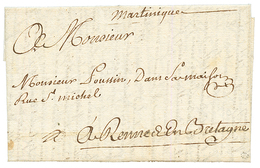 Martinique
A Monsieur
Monsieur Poussin, Dans Sa maison
Rue St. michel
A Rennes En Bretagne